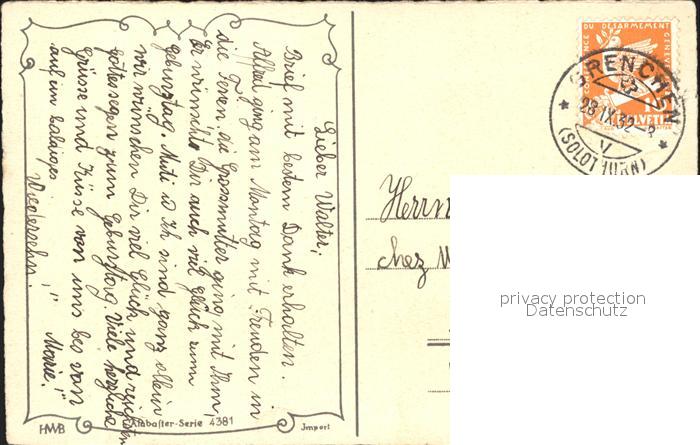 Lieber Walter,
Brief mit bestem Dank erhalten.
Alfred ging am Montag mit Freuden in
die Ferien, die Grossmutter ging mit Ihm,
Er wünschte Dir auch viel glück zum
geburtstag. Muti u Ich sind ganz allein
wir wünschen Dir viel Glück und reichsten
gottessegen zum Geburtstag. Viele herzliche
grüsse und Küsse von uns bes von
auf ein baldiges Marie!"
Wiedersehn!"
HWB
Alabaster-Serie 4381
Import
CONFERENCE DU DESARMEMENT GENEVE
HELVETIA
GRENCHEN
28.IX.32
(SOLOTHURN)
Herrn
chez
privacy protection
Datenschutz